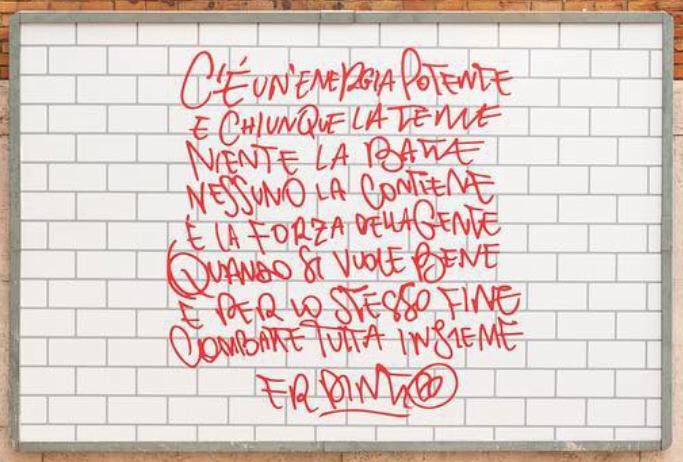 C'È UN'ENERGIA POTENTE
E CHIUNQUE LA TEME
NIENTE LA BATTE
NESSUNO LA CONTIENE
È LA FORZA DELLA GENTE
QUANDO SI VUOLE BENE
E PER LO STESSO FINE
COMBATTE TUTTA INSIEME
ER PINTO